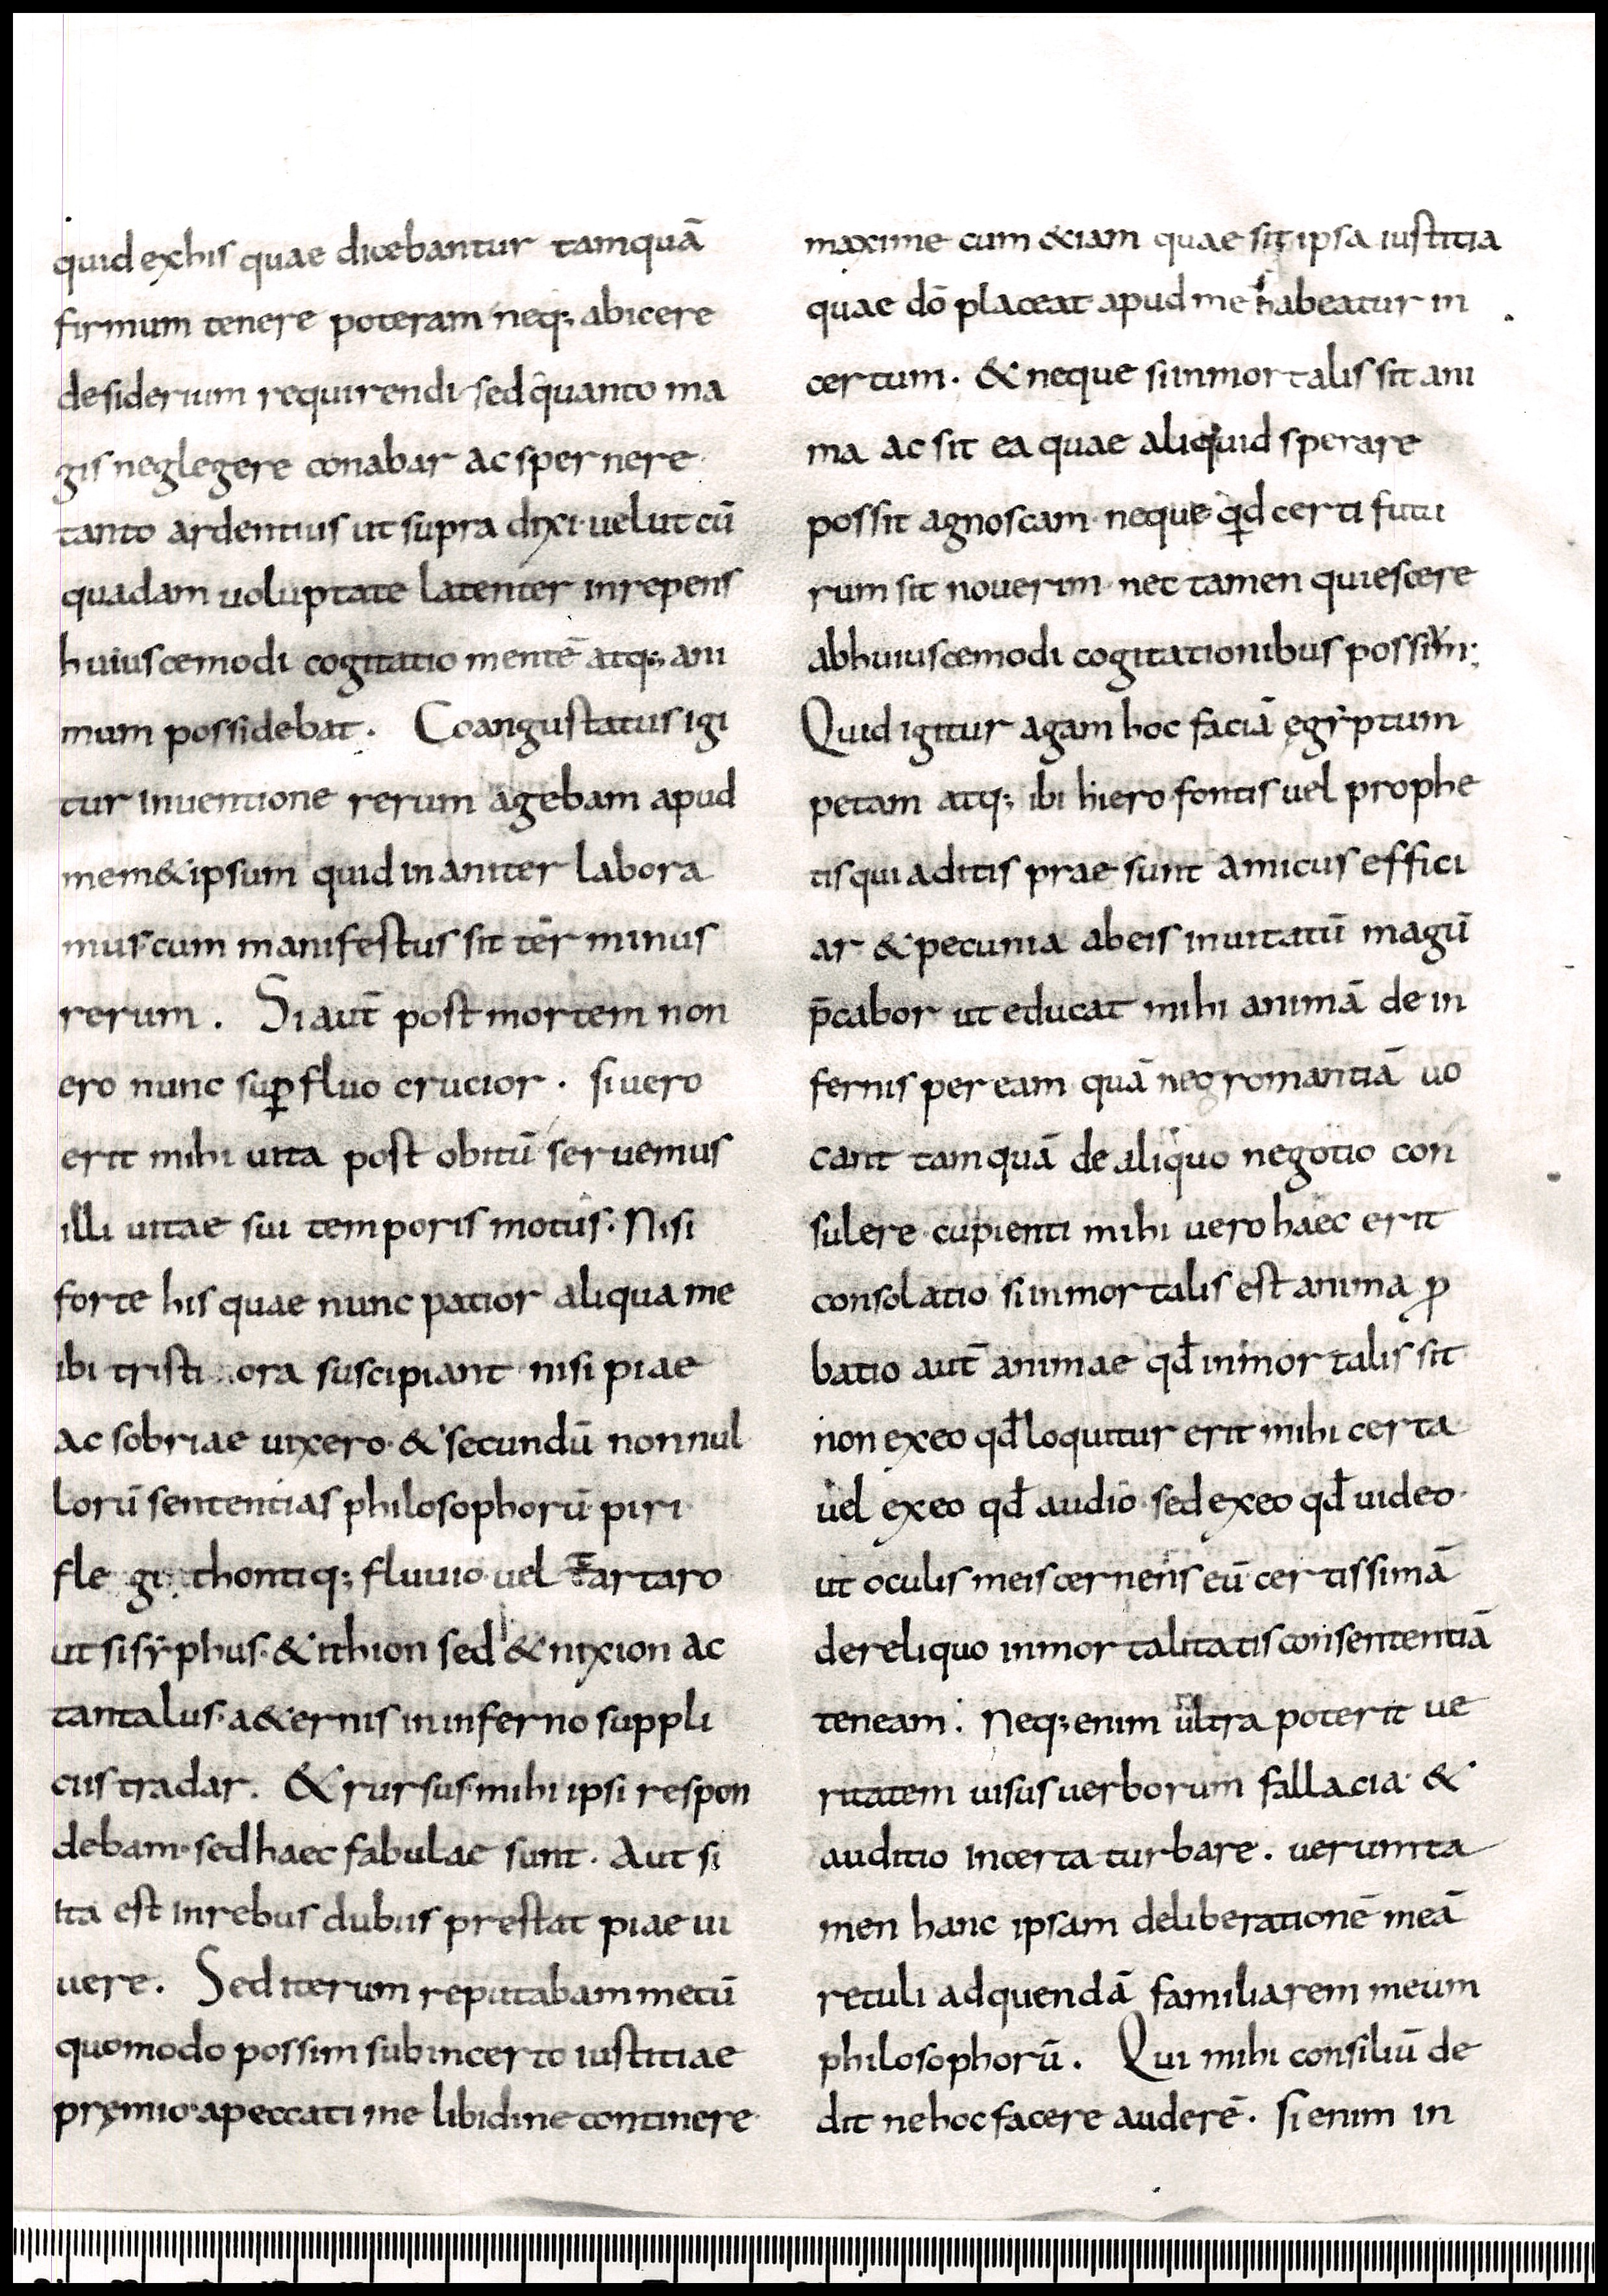 quid exhis quae dicebantur tamquā
firmum tenere poteram neq; abicere
desiderium requirendi· sed quanto ma
gis neglegere conabar ac spernere·
tanto ardentius ut supra dixi· uelut cū
quadam uoluptate latenter inrepens
huiuscemodi cogitatio mentē atq; ani
mum possidebat. Coangustatus igi
tur inuentione rerum agebam apud
mem&ipsum quid inaniter labora
mus· cum manifestus sit terminus
rerum. Si aut̄ post mortem non
ero nunc suꝑfluo crucior. si uero
erit mihi uita post obitū seruemus
illi uitae sui temporis motus· Nisi
forte his quae nunc patior aliqua me
ibi tristi ora suscipiant· nisi piae
ac sobriae uixero· & secundū nonnul
lorū sententias philosophorū· piri
fle gi thontiq; fluuio· uel tartaro
ut sisyphus· & ithion sed & nixion ac
tantalus· a&ernis in inferno suppli
ciis tradar. & rursus· mihi ipsi respon
debam· sed haec fabulae sunt. Aut si
ita est inrebus dubiis prestat piae ui
uere. Sed iterum reputabam mecū
quomodo possim sub incerto iustitiae
pręmio· a peccati me libidine continere·
maxime cum &iam quae sit ipsa iustitia
quae dō placeat apud me habeatur in
certum. & neque si inmortalis sit ani
ma ac sit ea quae aliquid sperare
possit agnoscam· neque qd certi futu
rum sit nouerim· nec tamen quiescere
abhuiuscemodi cogitationibus possim;
Quid igitur agam hoc faciā ęgyptum
petam atq; ibi hierofontis uel prophe
tis qui aditis prae sunt amicus effici
ar & pecunia abeis inuitatū magū
p̄cabor ut educat mihi animā de in
fernis per eam quā negromantiā uo
cant tamquā de aliquo negotio con
sulere· cupienti mihi uero haec erit
consolatio si inmortalis est anima ꝓ
batio aut̄ animae qđ inmortalis sit
non exeo qđ loquitur erit mihi certa
uel exeo qđ audio· sed exeo qđ uideo·
ut oculis meis cernens eū certissimā
dereliquo inmortalitatis consententiā
teneam. Neq; enim ultra poterit ue
ritatem uisus uerborum fallacia &
auditio incerta turbare. uerumta
men hanc ipsam deliberationē meā
retuli adquendā familiarem meum
philosophorū. Qui mihi consiliū de
dit ne hoc facere auderē. si enim in